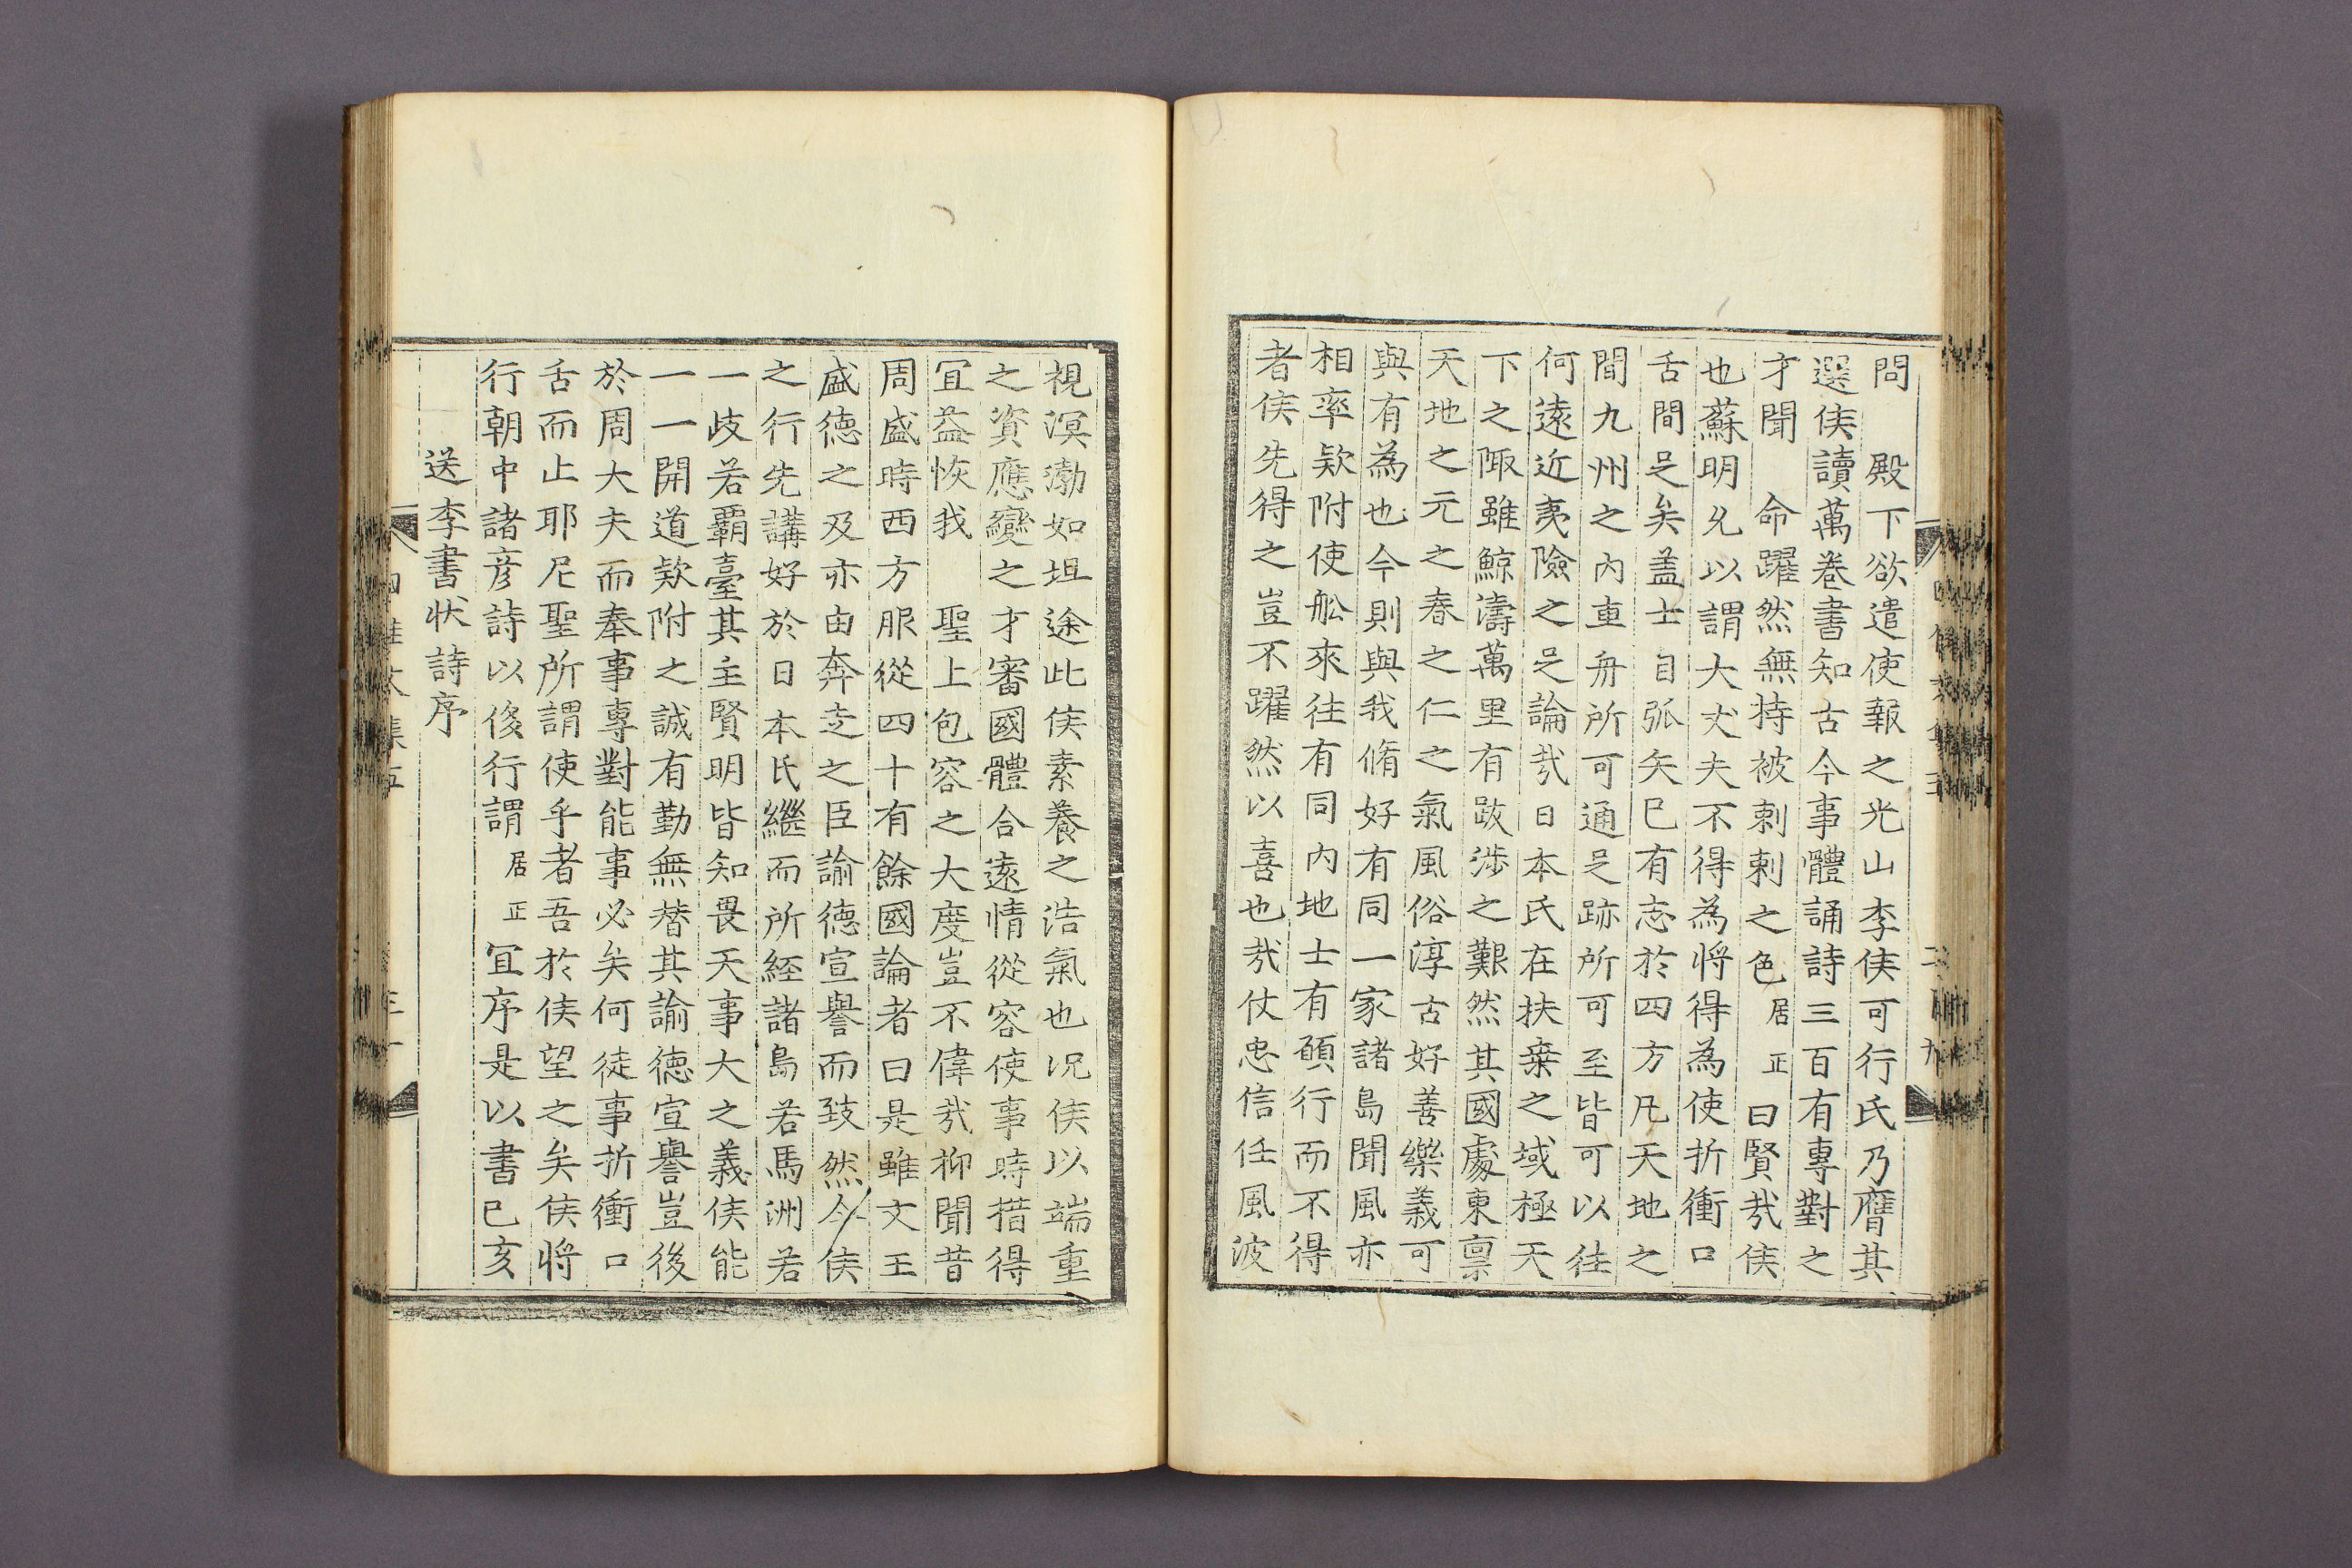 問　殿下欲遣使報之光山李侯可行氏乃膺其
選侯讀萬卷書知古今事體誦詩三百有專對之
才聞　命躍然無持被刺刺之色居正曰賢㢤侯
也蘇明允以謂大丈夫不得為將得為使折衝口
舌間足矣盖士自弧矢已有志於四方凡天地之
間九州之內車舟所可通足跡所可至皆可以往
何遠近夷險之足論㢤日本氏在扶桒之域極天
下之陬雖鯨濤萬里有跋涉之艱然其國處東禀
天地之元之春之仁之氣風俗淳古好善樂義可
與有為也今則與我脩好有同一家諸島聞風亦
相率欵附使舩來往有同內地士有願行而不得
者侯先得之豈不躍然以喜也㢤仗忠信任風波
視溟渤如坦途此侯素養之浩氣也况侯以端重
之資應變之才審國體合遠情從容使事時措得
冝益恢我　聖上包容之大度豈不偉㢤抑聞昔
周盛時西方服從四十有餘國論者曰是雖文王
盛德之及亦由奔走之臣諭德宣譽而致然今侯
之行先講好於日本氏繼而所經諸島若馬洲若
一歧若覇臺其主賢明皆知畏天事大之義侯能
一一開道欵附之誠有勤無替其諭德宣譽豈後
於周大夫而奉事專對能事必矣何徒事折衝口
舌而止耶尼聖所謂使乎者吾於侯望之矣侯將
行朝中諸彦詩以侈行謂居正冝序是以書己亥
送李書狀詩序